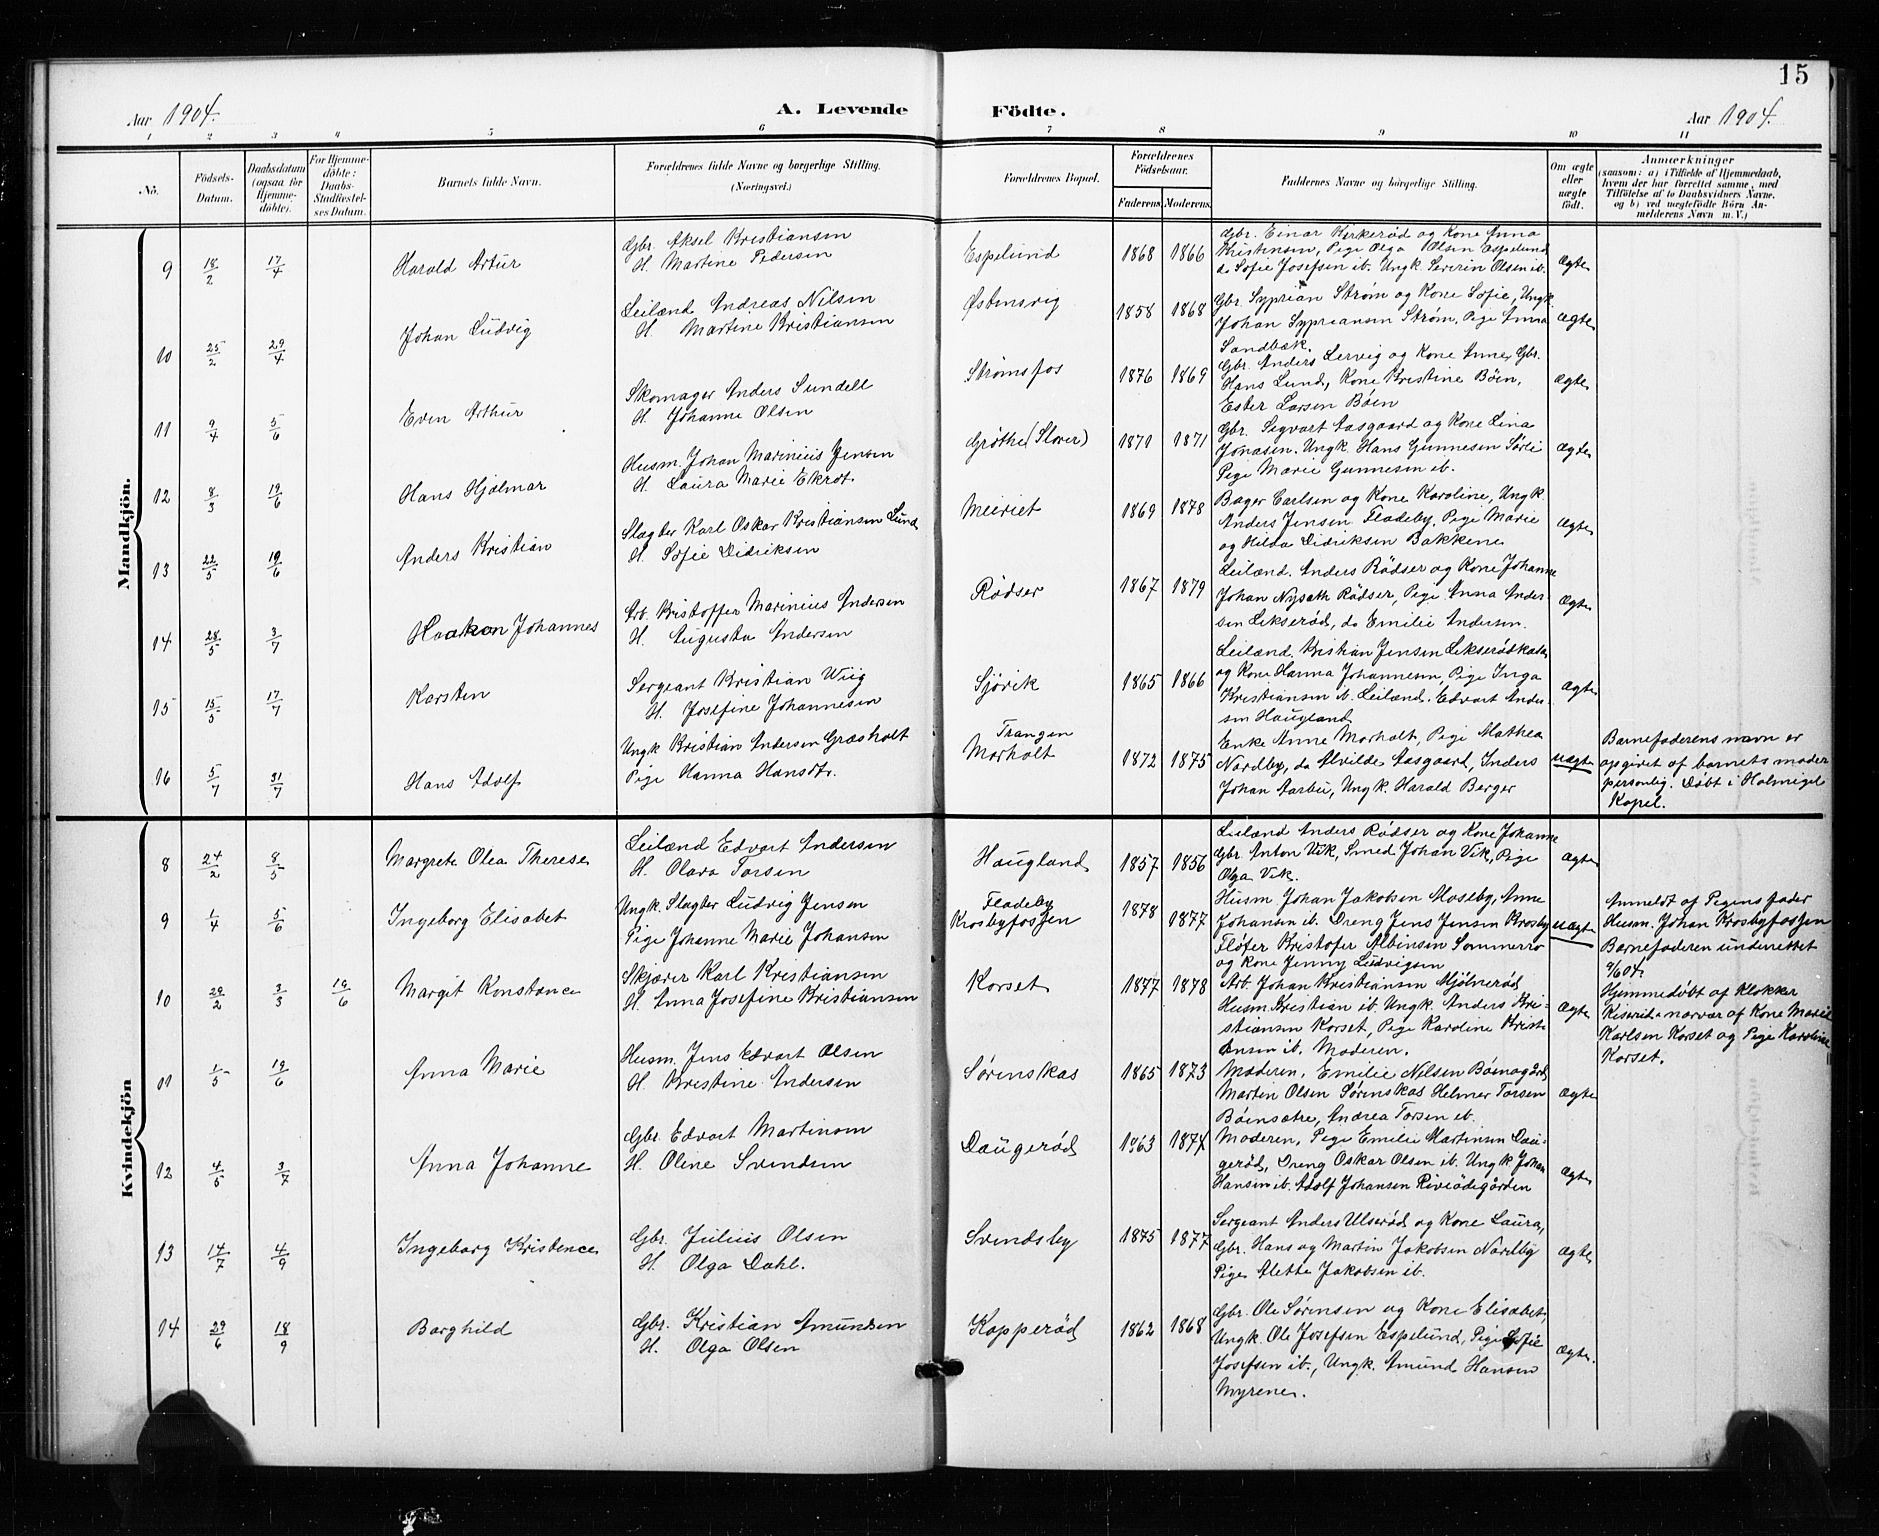 15
Aar 1904.
A. Levende Födte.
Aar 1904.
1 2 3 4 5 6 7 8 9 10 11
No.
Födsels-
Datum.
Daabsdatum
(ogsaa for
Hjemme-
döbte).
For Hjemme-
döbte:
Daabs-
Stadfæstel-
ses Datum.
Barnets fulde Navn.
Forældrenes fulde Navne og borgerlige Stilling.
(Næringsvei.)
Forældrenes Bopæl.
Forældrenes
Födselsaar.
Faderens.
Moderens.
Faddernes Navne og borgerlige Stilling.
Om ægte
eller
uægte
födt.
Anmærkninger
(saasom: a) i Tilfælde af Hjemmedaab,
hvem der har forrettet samme, med
Tilföielse af to Daabsvidners Navne,
og b) ved uægtefödte Börn An-
melderens Navn m. V.)
Mandkjön.
9 18/2 17/4 Harald Artur
Gbr. Aksel Kristiansen
H. Martine Pedersen
Espelund 1868 1866
Gbr. Einar Kirkerød og Kone Anna
Kristensen, Pige Olga Olsen Espelund
do Sofie Josefsen ib. Ungk. Severin Olsen ib.
Ægte
10 25/2 29/4 Johan Ludvig
Leilænd Andreas Nilsen
H. Martine Kristiansen
Østensvig 1858 1868
Gbr. Syprian Strøm og Kone Sofie, Ungk.
Johan Sypriansen Strøm, Pige Anna
Sandbæk.
Ægte
11 9/4 5/6 Even Arthur
Skomager Anders Sundell
H. Johanne Olsen
Strømsfos 1876 1869
Gbr. Anders Lervig og Kone Anne, Gbr.
Hans Lund, Kone Kristine Bøen,
Ester Larsen Bøen
Ægte
12 8/3 19/6 Hans Hjalmar
Husm. Johan Marinius Jensen
H. Laura Marie Ekrot.
Grøthe (Slorer) 1871 1871
Gbr. Sigvart Aasgaard og Kone Lina
Jonasen. Ungk. Hans Gunnesen Sørli
Pige Marie Gunnesen ib.
Ægte
13 22/5 19/6 Anders Kristian
Slagter Karl Oskar Kristiansen Lund
H. Sofie Didriksen
Meieriet 1869 1878
Bager Carlsen og Kone Karoline, Ungk.
Anders Jensen Fladeby, Pige Marie
og Hilda Didriksen Bakkene
Ægte
14 28/5 3/7 Haakon Johannes
Arb. Kristoffer Marinius Andersen
H. Augusta Andersen
Rødser 1867 1879
Leilænd. Anders Rødser og Kone Johanne
Johan Nysæth Rødser, Pige Anna Ander-
sen Lekserød, do Emilie Andersen.
Ægte
15 15/5 17/7 Karsten
Sergeant Kristian Wiig
H. Josefine Johannesen
Sjørik 1865 1866
Leilænd. Kristian Jensen
og Kone Hanna Johannesen, Pige Inga
Kristiansen ib. Leilænd. Edvart Ander-
sen Haugland
Ægte
16 5/7 31/7 Hans Adolf
Ungk Kristian Andersen Græsholt
Pige Hanna Hansdtr.
Trangen
Morholt 1872 1875
Enke Anne Morholt, Pige Mathea
Nordby, do Alvilde Aasgaard, Inders
Johan Aarbu, Ungk. Harald Berger
uægte
Barnefaderens navn er
opgivet af barnets moder
personlig. Døbt i Holmigel
Kapel.
Kvindekjön
8 24/2 8/5 Margrete Olea Therese
Leilænd Edvart Andersen
H. Olava Torsen
Haugland 1857 1856
Leilænd Anders Rødser og Kone Johanne
Gbr Anton Vik, Smed Johan Vik, Pige
Olga Vik.
Ægte
9 1/4 5/6 Ingeborg Elisabet
Ungk. Slagter Ludvig Jensen
Pige Johanne Marie Johansen
Fladeby
Krosbyfossen 1878 1877
Husm Johan Jakobsen Moseby, Anne
Johansen ib. Dreng Jens Jensen Krosby
Fløter Kristofer Albinsen Sommerro
og Kone Jenny Ludvigsen
uægte
Anmeldt af Pigens fader
Husm. Johan Krosbyfossen
Barnefaderen underrettet
6/04.
10 29/2 3/3 19/6 Margit Konstance
Skjærer Karl Kristiansen
H. Anna Josefine Kristiansen
Korset 1877 1878
Arb. Johan Kristiansen Mjølnerød
Husm. Kristian ib. Ungk. Anders Kri-
stiansen Korset, Pige Karoline Kristi-
ansen ib. Moderen.
Ægte
Hjemmedøbt af Klokker
nærvær af Kone Marie
Karlsen Korset og Pige Karoline
Korset.
11 1/5 19/6 Anna Marie
Husm. Jens Edvart Olsen
H. Kristine Andersen
Sørenskas 1865 1873
Moderen, Emilie Nilsen Bøenogård,
Martin Olsen Sørenskas Helmer Torsen
Bøensætre, Andrea Torsen ib.
Ægte
12 4/5 3/7 Anna Johanne
Gbr. Edvart Martinsen
H. Oline Svendsen
Daugerød 1863 1874
Moderen, Pige Emilie Martinsen Dau-
gerød, Dreng Oskar Olsen ib. Ungk Johan
Hansen ib. Adolf Johansen
Ægte
13 14/7 4/9 Ingeborg Kristence
Gbr. Julius Olsen
H. Olga Dahl.
Svendsby 1875 1877
Sergeant Anders Ulserød og Kone Laura,
Gbr. Hans og Martin Jakobsen Nordby
Pige Alette Jakobsen ib.
Ægte
14 29/6 18/9 Borghild
Gbr. Kristian Amundsen
H. Olga Olsen
Kopperød 1862 1868
Gbr. Ole Sørensen og Kone Elisabet,
Ungk. Ole Josefsen Espelund, Pige Sofie
Josefsen ib., Ungk. Amund Hansen
Myrene.
Ægte.